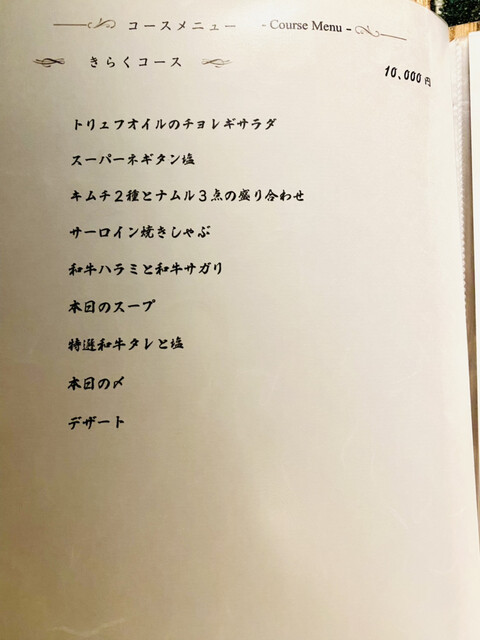 コースメニュー - Course Menu -
きらくコース
10,000円
トリュフオイルのチョレギサラダ
スーパーネギタン塩
キムチ2種とナムル3点の盛り合わせ
サーロイン焼きしゃぶ
和牛ハラミと和牛サガリ
本日のスープ
特選和牛タレと塩
本日の〆
デザート